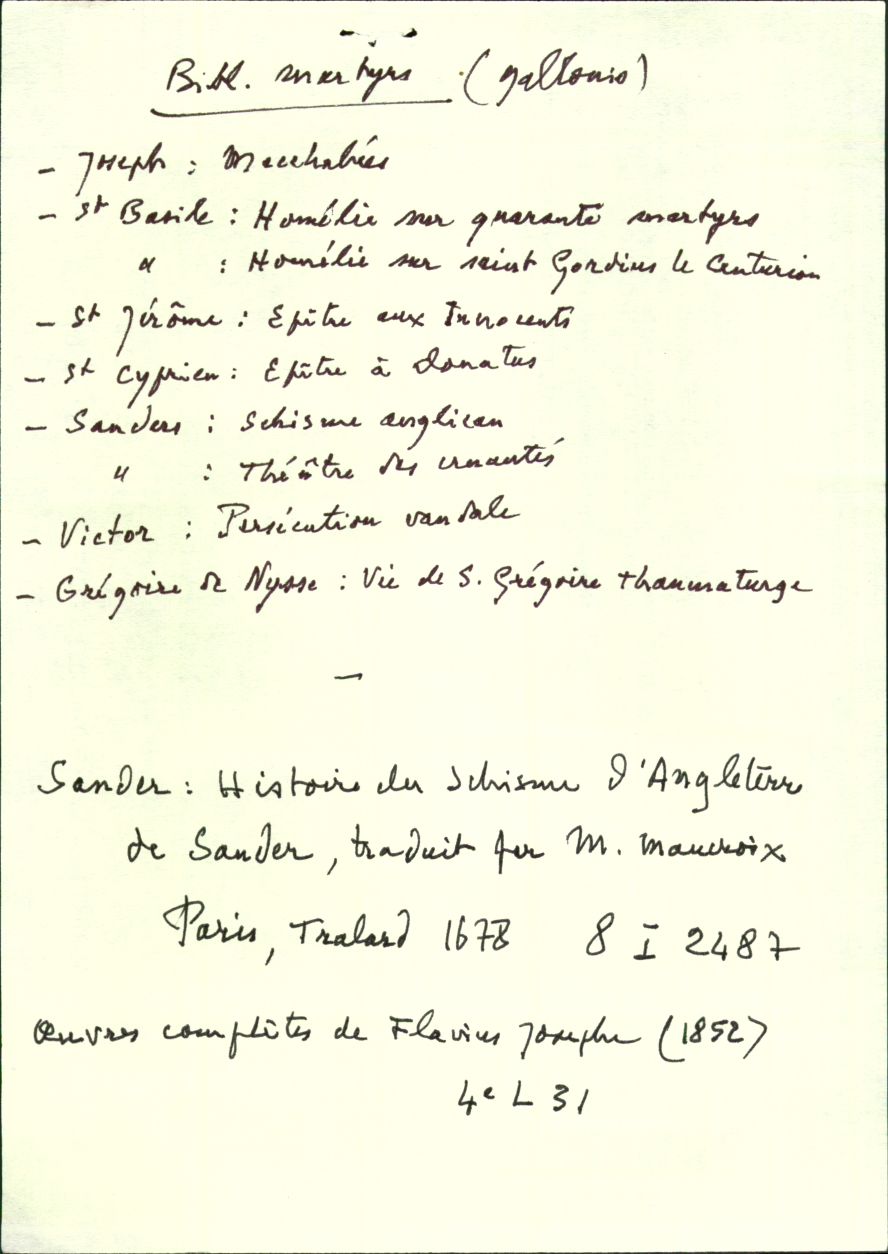 Bibl. martyrs (Gallonio)
- Joseph : Macchabées
- St Basile : Homélie sur quarante martyrs
" : Homélie sur saint Gordius le Centurion
- St Jérôme : Epître aux Innocents
- St Cyprien : Epître à Donatus
- Sanders : Schisme anglican
" : Théâtre des cruautés
- Victor : Persécution vandale
- Grégoire de Nysse : Vie de S. Grégoire thaumaturge
—
Sander : Histoire du Schisme d'Angleterre
de Sander, traduit par M. Maucroix
Paris, Tralard 1678 8 I 2487
Œuvres complètes de Flavius Josephe (1852)
4e L 31